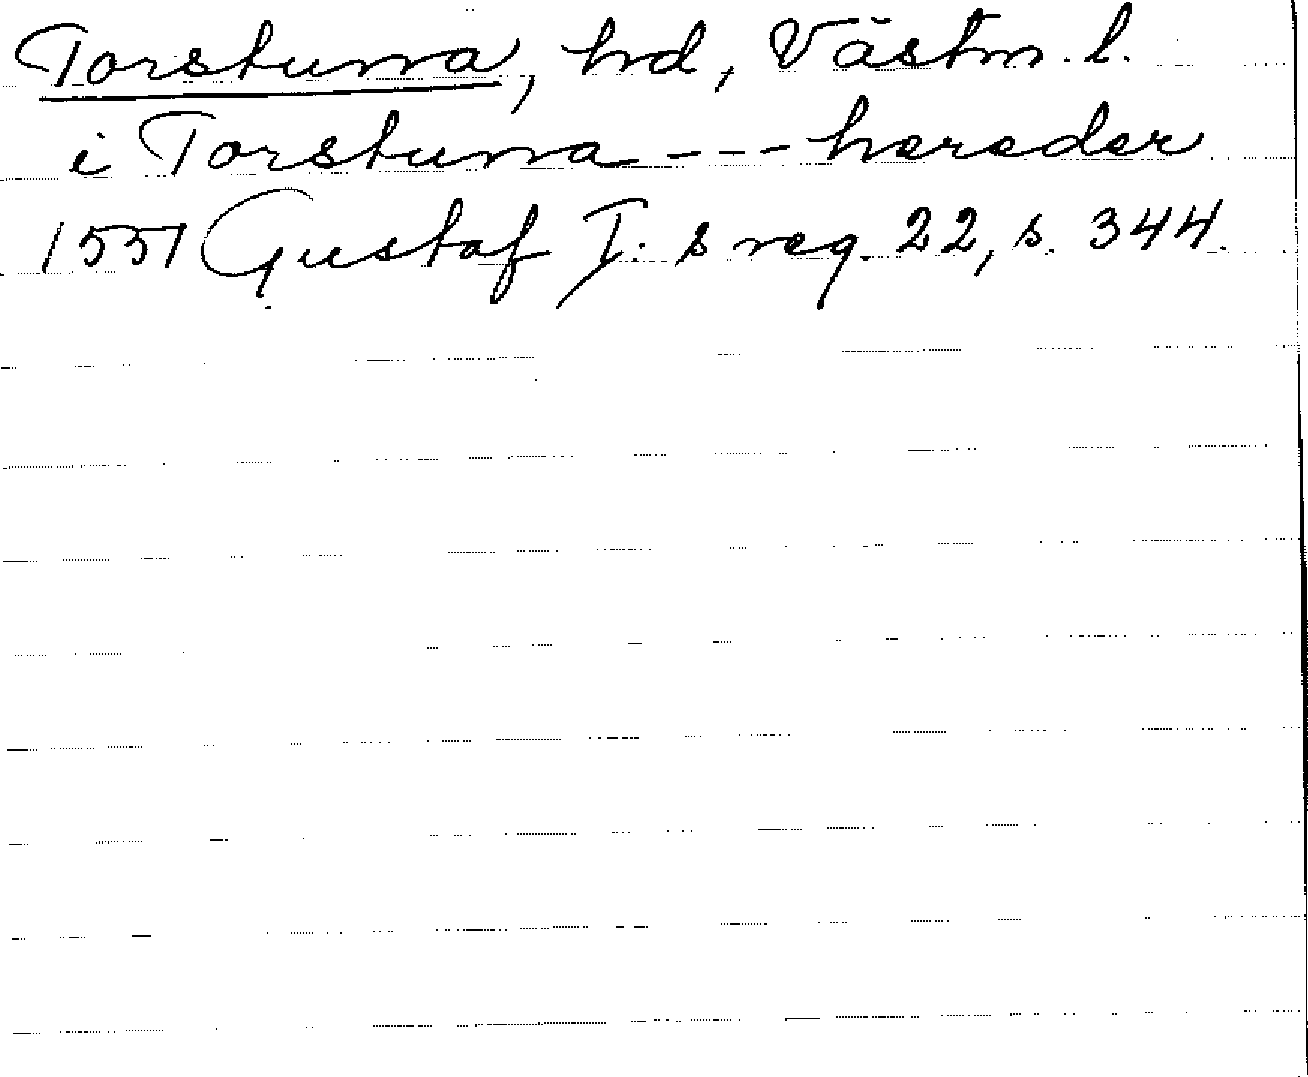 Torstuna, hd, Västm. l.
i Torstuna --- hereder
1551 Gustaf I:s reg. 22, s. 344.